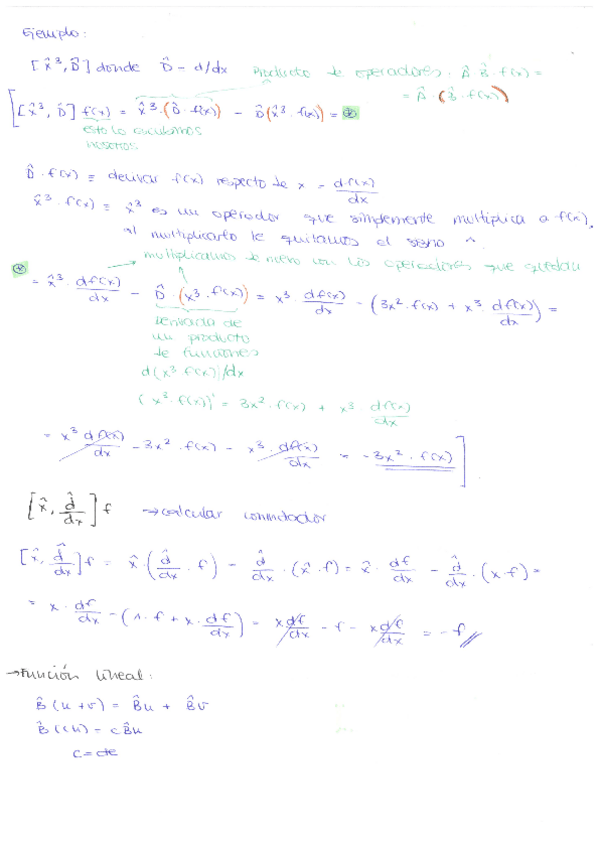 Ejemplo:
[x̂³, D̂] donde D̂ = d/dx Producto de operadores: Â B̂ · f(x) =
= Â · (B̂ · f(x))
[x̂³, D̂] f(x) = x̂³ · (D̂ · f(x)) - D̂(x̂³ · f(x)) = ⊛
esto lo
nosotros
D̂ · f(x) = derivar f(x) respecto de x = df(x)/dx
x̂³ · f(x) = x̂³ es un operador que simplemente multiplica a f(x),
al multiplicarlo le quitamos el ^.
multiplicamos de nuevo con los operadores que quedan
⊛ = x̂³ · df(x)/dx - D̂ · (x³ · f(x)) = x³ · df(x)/dx - (3x² · f(x) + x³ · df(x)/dx) =
de
un producto
de funciones
d(x³ f(x))/dx
(x³ · f(x))' = 3x² · f(x) + x³ df(x)/dx
= x³ df(x)/dx - 3x² · f(x) - x³ · df(x)/dx = -3x² · f(x)]
[x̂, d̂/dx] f → calcular conmutador
[x̂, d̂/dx] f = x̂ · (d̂/dx · f) - d̂/dx · (x̂ · f) = x̂ · df/dx - d̂/dx · (x · f) =
= x · df/dx - (1 · f + x · df/dx) = x df/dx - f - x df/dx = -f //
→ Función lineal:
B̂ (u + v) = B̂u + B̂v
B̂ (cu) = c B̂u
c = cte